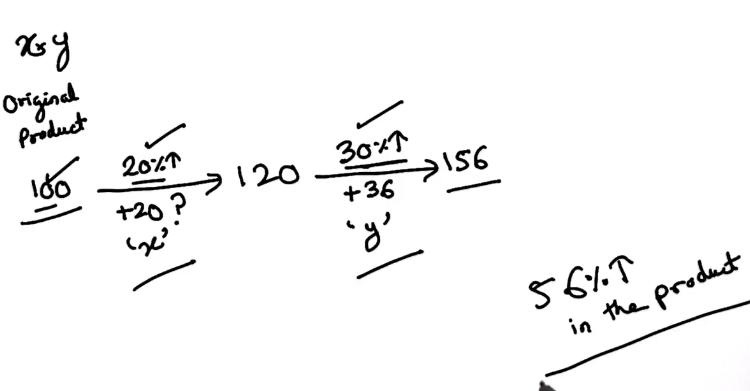 x*y
Original
Product
100
20%↑
+20?
'x'
120
30%↑
+36
'y'
156
56%↑
in the product